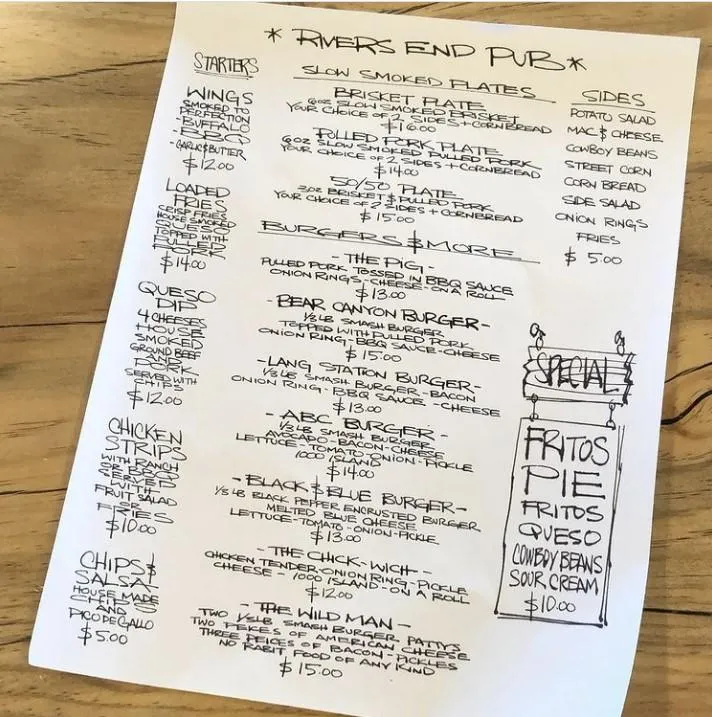 * RIVERS END PUB *
STARTERS
WINGS
SMOKED TO
PERFECTION
- BUFFALO
- BBQ
- GARLIC $ BUTTER
$12.00
LOADED
FRIES
CRISP FRIES
HOUSE SMOKED
QUESO
TOPPED WITH
PULLED
PORK
$14.00
QUESO
DIP
4 CHEESES
HOUSE
SMOKED
GROUND BEEF
AND
PORK
SERVED WITH
CHIPS
$12.00
CHICKEN
STRIPS
WITH RANCH
OR BBQ
SERVED
WITH
FRUIT SALAD
OR
FRIES
$10.00
CHIPS $
SALSA
HOUSE MADE
CHIPS
AND
PICO DE GALLO
$5.00
SLOW SMOKED PLATES
BRISKET PLATE
6OZ SLOW SMOKED BRISKET
YOUR CHOICE OF 2 SIDES + CORNBREAD
$16.00
PULLED PORK PLATE
6OZ SLOW SMOKED PULLED PORK
YOUR CHOICE OF 2 SIDES + CORNBREAD
$14.00
50/50 PLATE
3OZ BRISKET $ PULLED PORK
YOUR CHOICE OF 2 SIDES + CORNBREAD
$15.00
BURGERS $ MORE
- THE PIG -
PULLED PORK TOSSED IN BBQ SAUCE
ONION RINGS - CHEESE - ON A ROLL
$13.00
- BEAR CANYON BURGER -
1/3 LB SMASH BURGER
TOPPED WITH PULLED PORK
ONION RING - BBQ SAUCE - CHEESE
$15.00
- LANG STATION BURGER -
1/3 LB SMASH BURGER - BACON
ONION RING - BBQ SAUCE - CHEESE
$13.00
- ABC BURGER -
1/3 LB SMASH BURGER
AVOCADO - BACON - CHEESE
LETTUCE - TOMATO - ONION - PICKLE
1000 ISLAND
$14.00
- BLACK $ BLUE BURGER -
1/3 LB BLACK PEPPER ENCRUSTED BURGER
MELTED BLUE CHEESE
LETTUCE - TOMATO - ONION - PICKLE
$13.00
- THE CHICK-WICH -
CHICKEN TENDER - ONION RING - PICKLE
CHEESE - 1000 ISLAND - ON A ROLL
$12.00
- THE WILD MAN -
TWO 1/3LB SMASH BURGER PATTY'S
TWO PEICES OF AMERICAN CHEESE
THREE PEICES OF BACON - PICKLES
NO RABIT FOOD OF ANY KIND
$15.00
SIDES
POTATO SALAD
MAC $ CHEESE
COWBOY BEANS
STREET CORN
CORN BREAD
SIDE SALAD
ONION RINGS
FRIES
$5.00
SPECIAL
FRITOS
PIE
FRITOS
QUESO
COWBOY BEANS
SOUR CREAM
$10.00